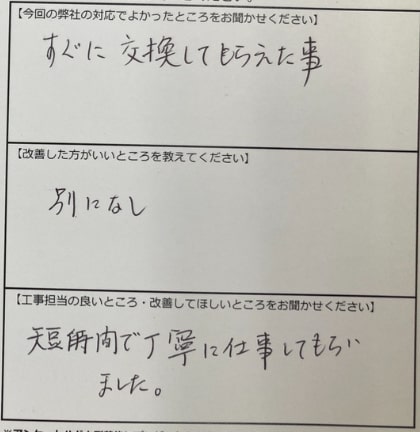 【今回の弊社の対応でよかったところをお聞かせください】
すぐに交換してもらえた事
【改善した方がいいところを教えてください】
別になし
【工事担当の良いところ・改善してほしいところをお聞かせください】
短時間で丁寧に仕事してもらい
ました。